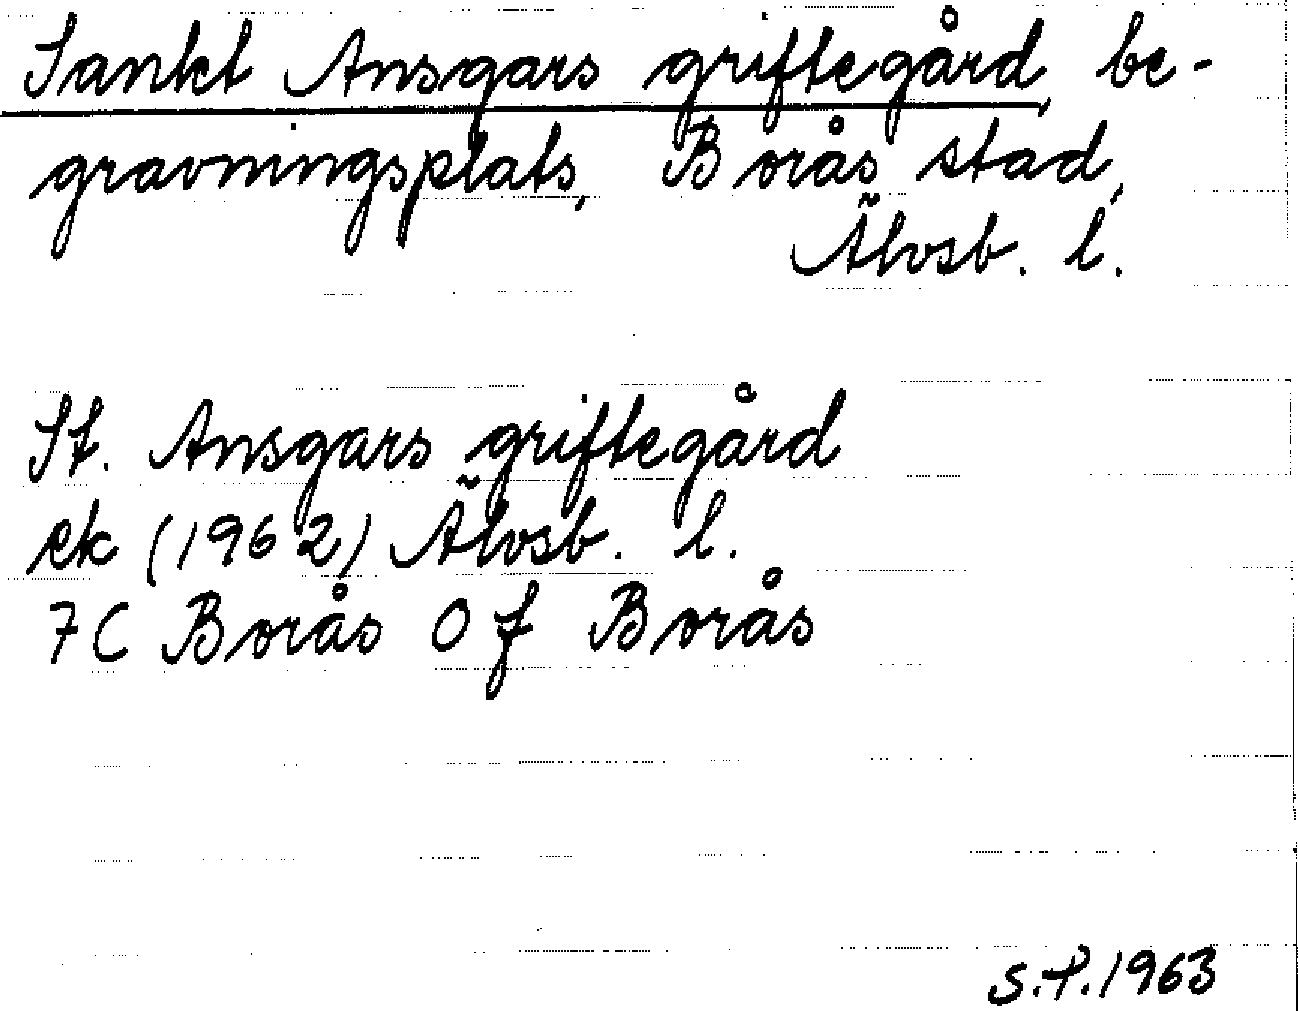 Sankt Ansgars griftegård, be-
gravningsplats, Borås stad,
Älvsb. l.
St. Ansgars griftegård
ek (1962) Älvsb. l.
7C Borås 0f Borås
S.P. 1963